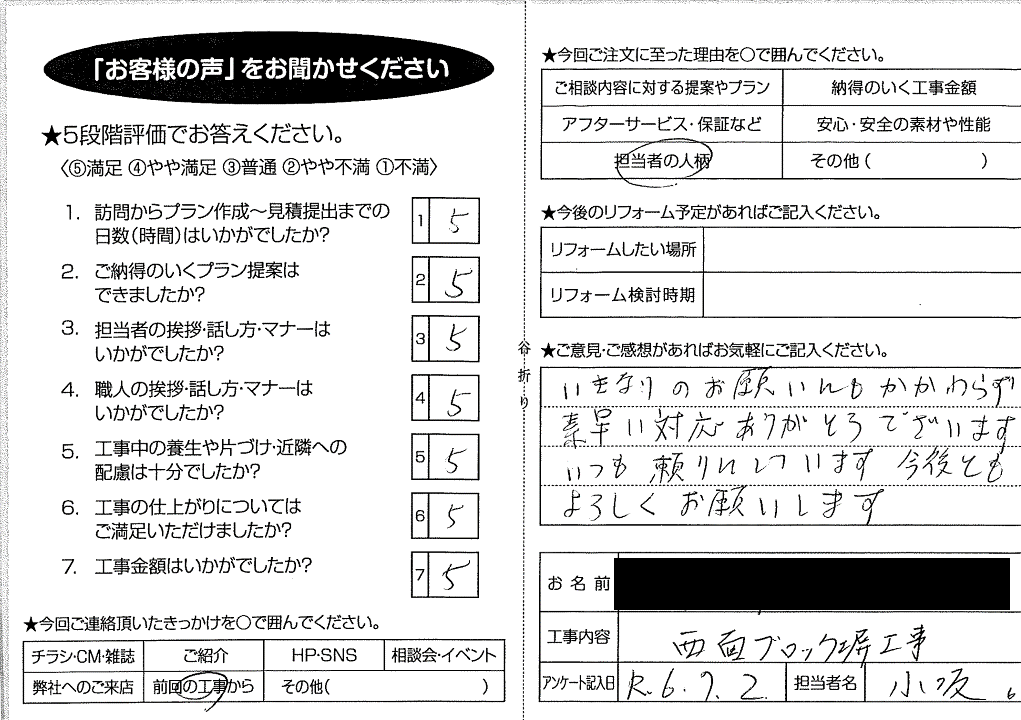 「お客様の声」をお聞かせください
★5段階評価でお答えください。
〈⑤満足 ④やや満足 ③普通 ②やや不満 ①不満〉
1. 訪問からプラン作成～見積提出までの
日数(時間)はいかがでしたか?
1 5
2. ご納得のいくプラン提案は
できましたか?
2 5
3. 担当者の挨拶・話し方・マナーは
いかがでしたか?
3 5
4. 職人の挨拶・話し方・マナーは
いかがでしたか?
4 5
5. 工事中の養生や片づけ・近隣への
配慮は十分でしたか?
5 5
6. 工事の仕上がりについては
ご満足いただけましたか?
6 5
7. 工事金額はいかがでしたか?
7 5
★今回ご連絡頂いたきっかけを〇で囲んでください。
チラシ・CM・雑誌 ご紹介 HP・SNS 相談会・イベント
弊社へのご来店 前回の工事から その他( )
谷折り
★今回ご注文に至った理由を〇で囲んでください。
ご相談内容に対する提案やプラン 納得のいく工事金額
アフターサービス・保証など 安心・安全の素材や性能
担当者の人柄 その他( )
★今後のリフォーム予定があればご記入ください。
リフォームしたい場所
リフォーム検討時期
★ご意見・ご感想があればお気軽にご記入ください。
いきなりのお願いにもかかわらず
素早い対応ありがとうございます
いつも頼りにしています 今後とも
よろしくお願いします
お名前
工事内容 西面ブロック塀工事
アンケート記入日 R.6.7.2. 担当者名 小坂
6